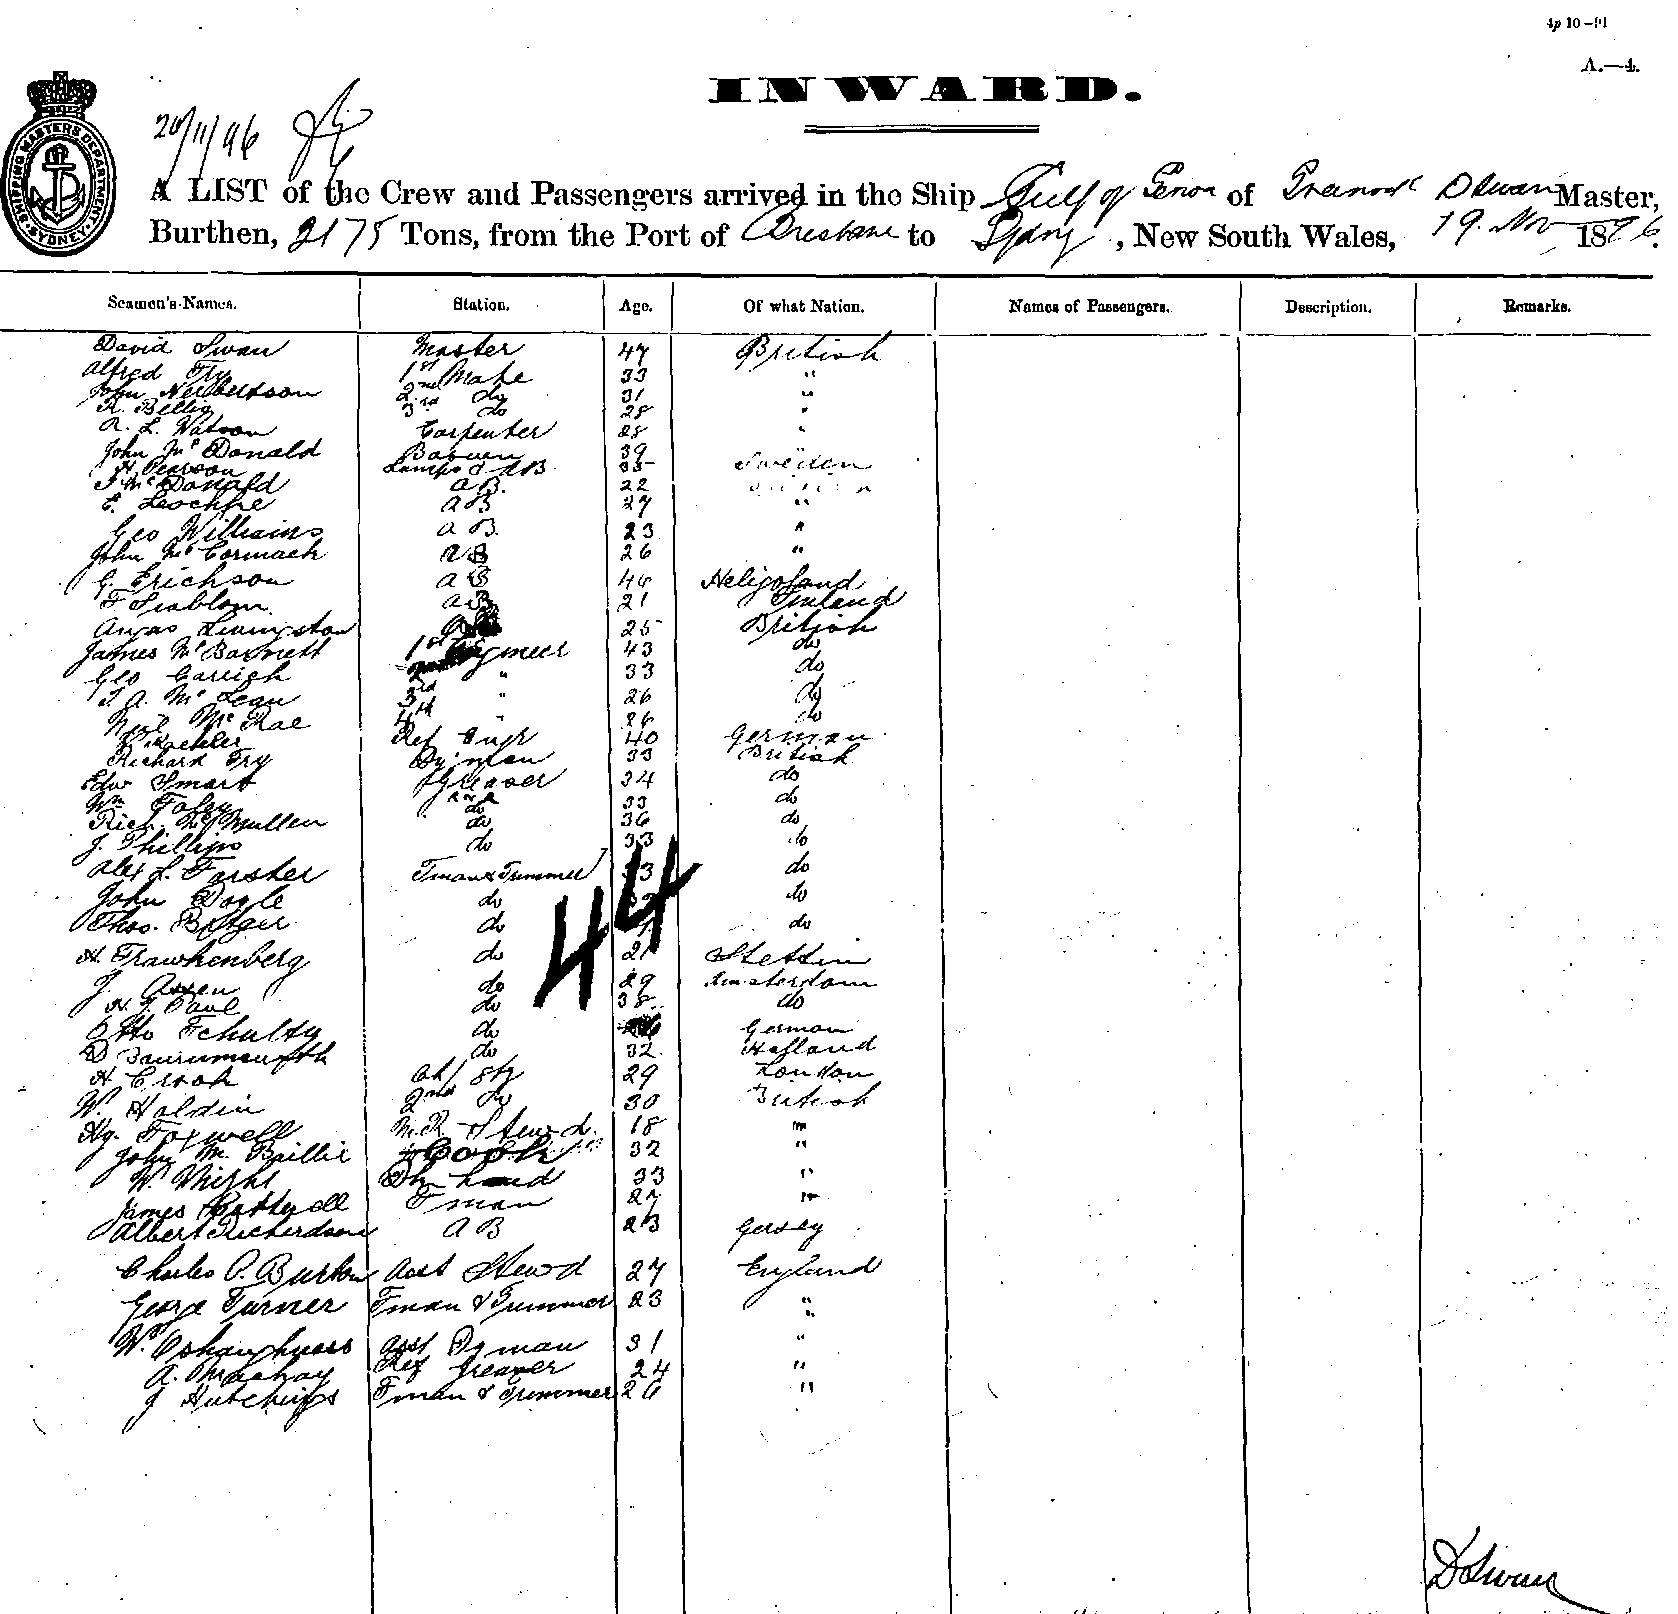 4p 10–91
A.—4.
INWARD.
SHIPPING MASTERS DEPARTMENT SYDNEY
20/11/96
A LIST of the Crew and Passengers arrived in the Ship Gulf of Genoa of Greenock D Swan Master,
Burthen, 2175 Tons, from the Port of Brisbane to Sydney, New South Wales, 19. Nov 1896.
Seamen's Names. Station. Age. Of what Nation. Names of Passengers. Description. Remarks.
David Swan Master 47 British
Alfred Fry 1st Mate 33 "
John 2nd do 31 "
R. Billig 3rd do 28 "
A. L. Watson Carpenter 28 "
John McDonald Bosun 39
H. Pearson Lamps & AB 35 Sweden
J. McDonald AB. 22
E. AB 27 "
Geo Williams AB. 23 "
John McCormack AB 26 "
G. Erichson AB 46 Heligoland
F AB 21 Finland
Angas Livingston 25 British
James McBarnett 1st Engineer 43 do
Geo Carrick 33 do
J. A. McLean 3rd " 26 do
Neil McRae 4th " 26 do
Koehler Ref Engr 40 German
Richard Fry Dyman 33 British
Edw Smart Greaser 34 do
Wm Foley do 33 do
Rich. McMullen do 36 do
J. Phillips do 33 do
Alex L. Forster Fman & Trimmer 33 do
John Doyle do do
Thos. do do
H. Frawkenberg do 21 Stettin
J. Assen do 29 Amsterdam
H. J. Paul do 38 do
Otto Schultz do German
D do 32 Holland
H Crook Ch/ Std 29 London
W. Holdin 2nd do 30 British
Hy. Foxwell M.R. Stewd. 18 "
John M. Baillie Cook 32 "
W. 33 "
James Fman 27 "
Albert Richerdson AB 23 Jersey
Charles P. Burton Asst Stewd 27 England
George Turner Fman & Trimmer 23 "
W. Oshaughness Asst Dyman 31 "
A. Mackay Ref Greaser 24 "
J Hutchings Fman & Trimmer 26 "
44
D Swan